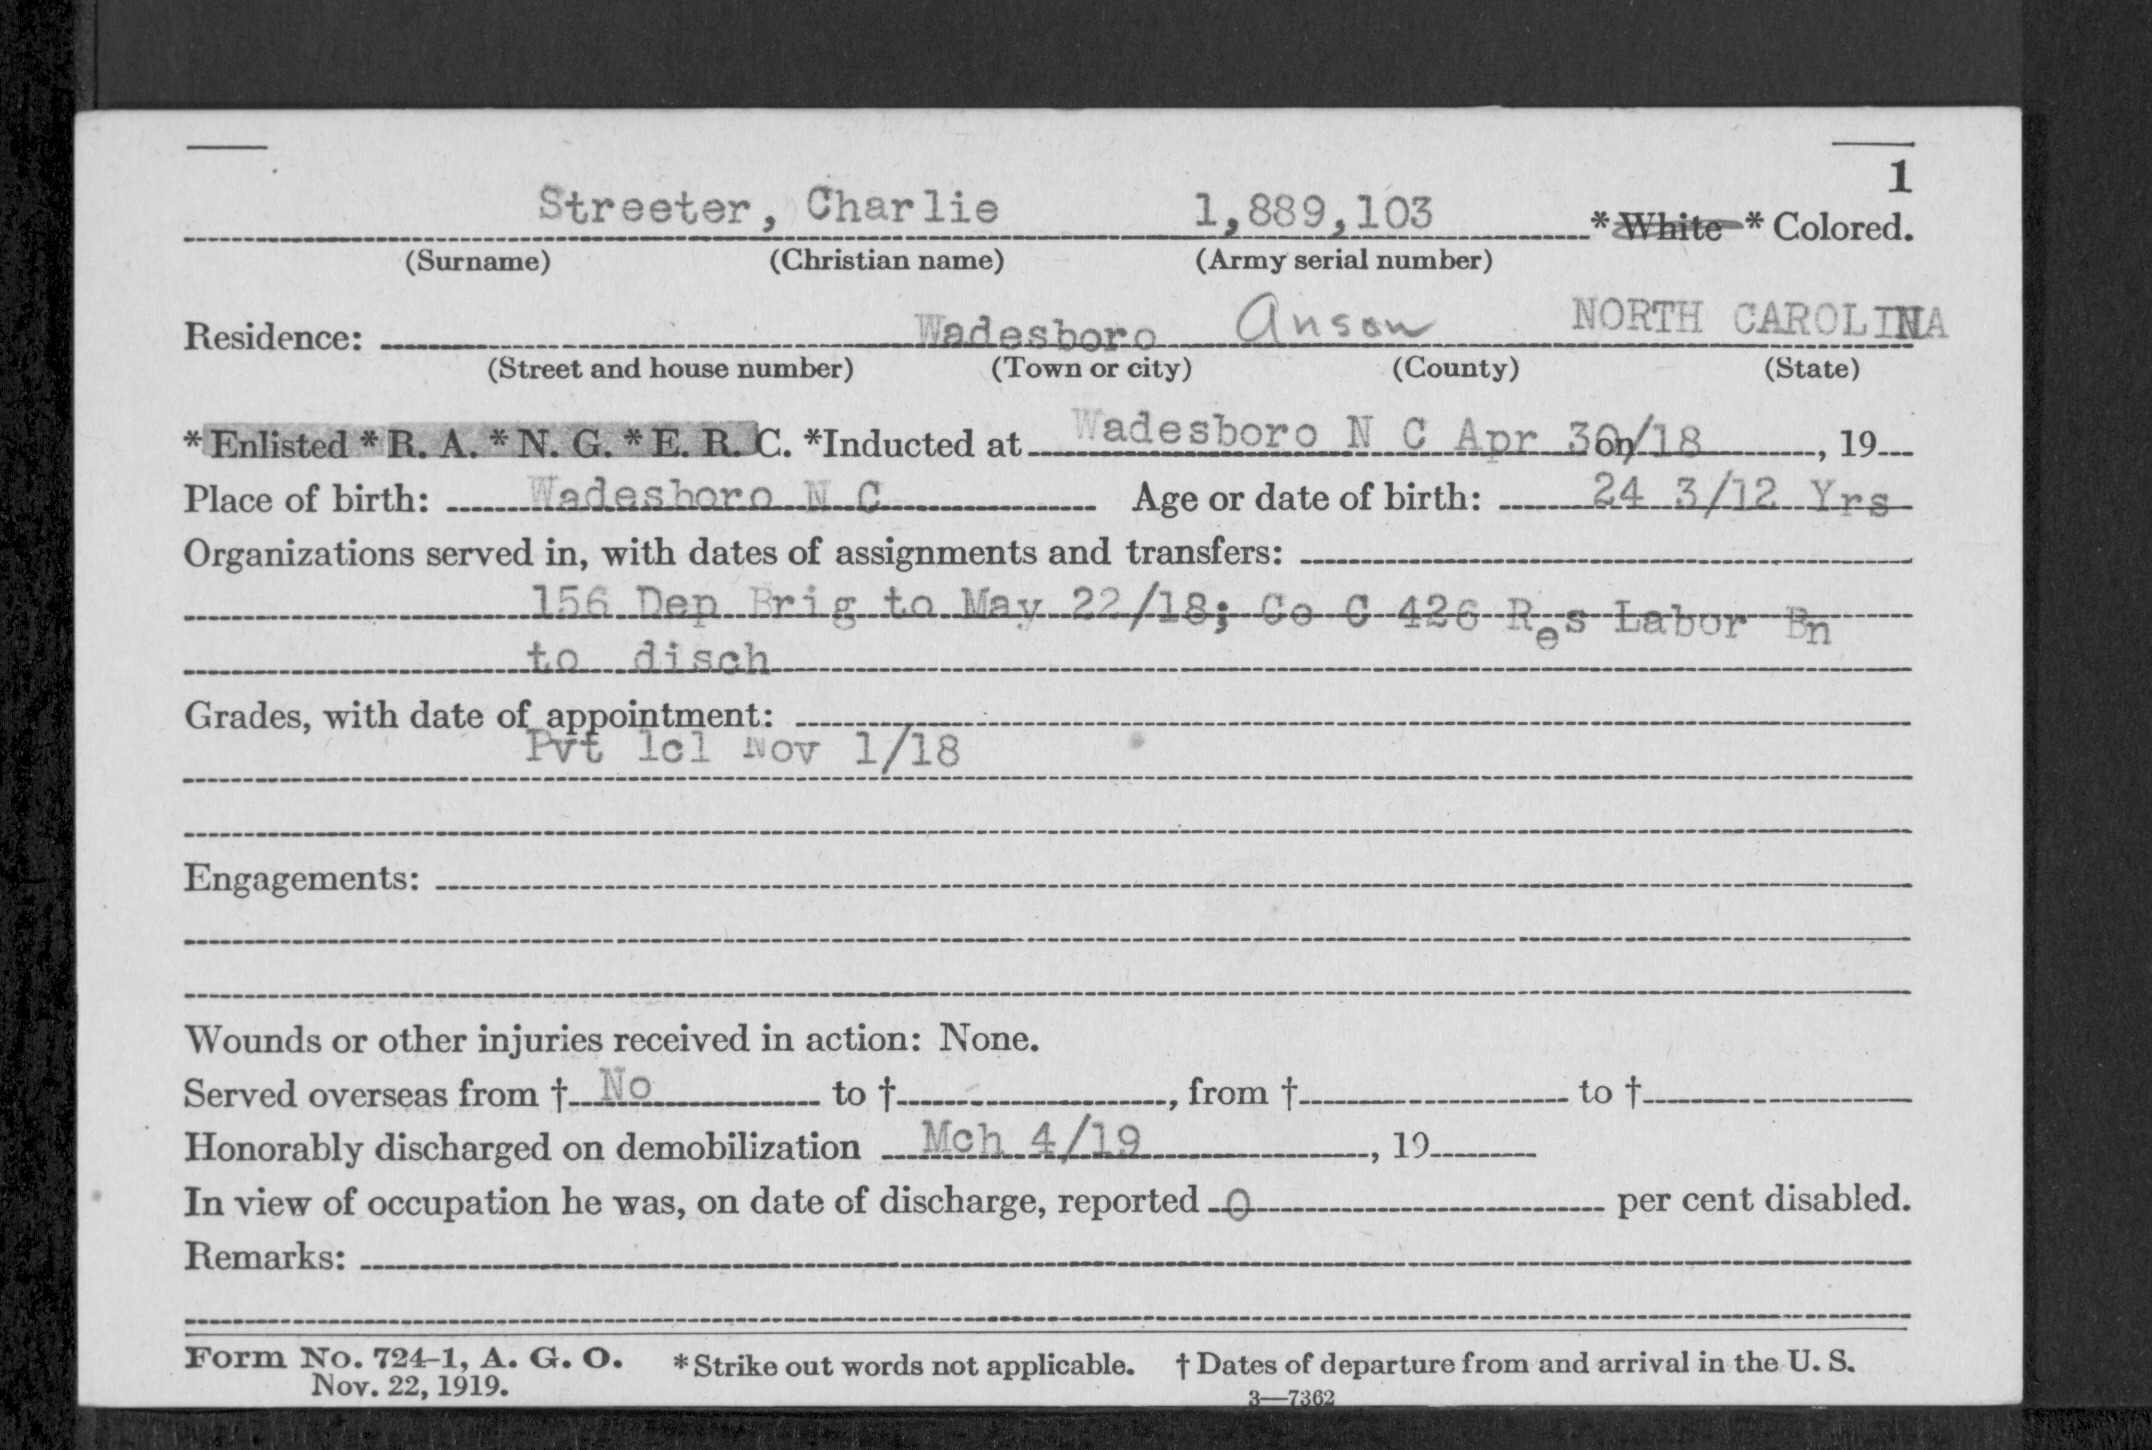 1
Streeter, Charlie 1,889,103 *White *Colored.
(Surname) (Christian name) (Army serial number)
Residence: Wadesboro Anson NORTH CAROLINA
(Street and house number) (Town or city) (County) (State)
*Enlisted *R. A. *N. G. *E. R. C. *Inducted at Wadesboro N C Apr 30/18 on , 19
Place of birth: Wadesboro N C Age or date of birth: 24 3/12 Yrs
Organizations served in, with dates of assignments and transfers:
156 Dep Brig to May 22/18; Co C 426 Res Labor Bn
to disch
Grades, with date of appointment:
Pvt 1cl Nov 1/18
Engagements:
Wounds or other injuries received in action: None.
Served overseas from † No to † , from † to †
Honorably discharged on demobilization Mch 4/19 , 19
In view of occupation he was, on date of discharge, reported 0 per cent disabled.
Remarks:
Form No. 724-1, A. G. O. *Strike out words not applicable. †Dates of departure from and arrival in the U. S.
Nov. 22, 1919.
3—7362